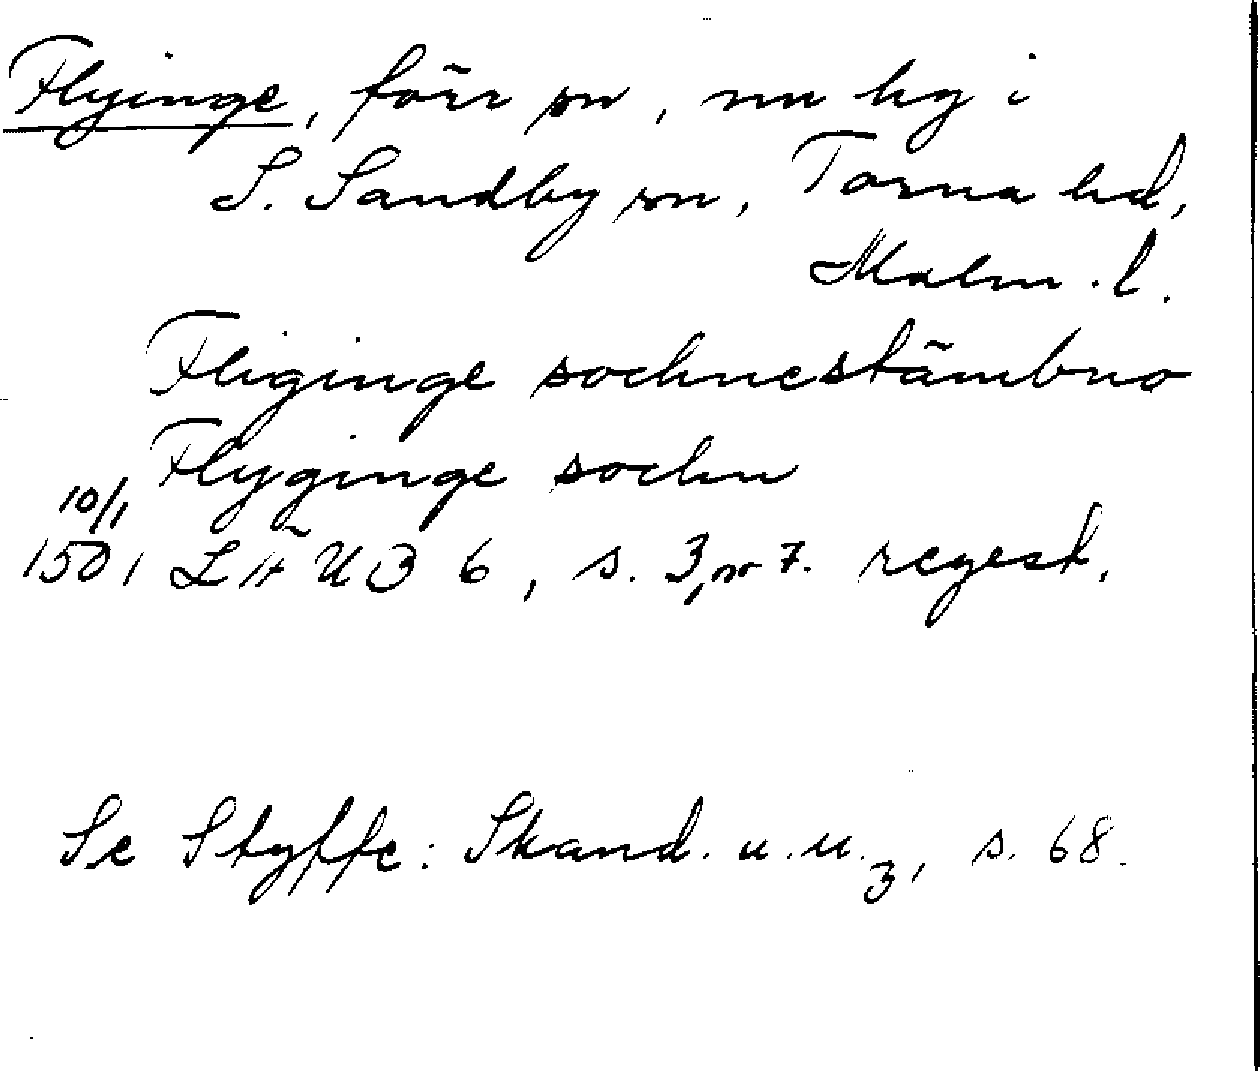 Flyinge, förr sn, nu by i
S. Sandby sn, Torna hd,
Malm. l.
Fliginge sochnestämbno
Flyginge sochn
10/1
1501 LÄUB 6, s. 3, nr 7. regest.
Se Styffe: Skand. u. u. 3, s. 68.